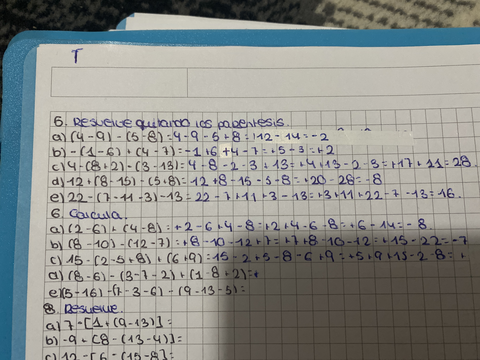 T
6. Resuelve quitando los paréntesis
a) (4-9) - (5-8) = 4-9-5+8 = 12-14 = -2
b) -(1-6) + (4-7) = -1+6+4-7 = +5-3 = +2
c) 4-(8+2) - (3-13) = 4-8-2-3+13 = +4+13-2-3 = +17+11 = 28
d) 12+(8-15) - (5+8) = 12+8-15-5-8 = +20-28 = -8
e) 22-(7-11-3)-13 = 22-7+11+3-13 = +3+11+22-7-13 = 16.
6. Calcula.
a) (2-6) + (4-8) = +2-6+4-8 = +2+4-6-8 = +6-14 = -8
b) (8-10) - (12-7) = +8-10-12+7 = +7+8-10-12 = +15-22 = -7
c) 15-(2-5+8) + (6+9) = 15-2+5-8-6+9 = +5+9+15-2-8 = +
d) (8-6) - (3-7-2) + (1-8+2) = +
e) (5-16) - (7-3-6) - (9-13-5) =
8. Resuelve.
a) 7-[1+(9-13)] =
b) -9+[8-(13-4)] =
c) 12-[6-(15-8] =